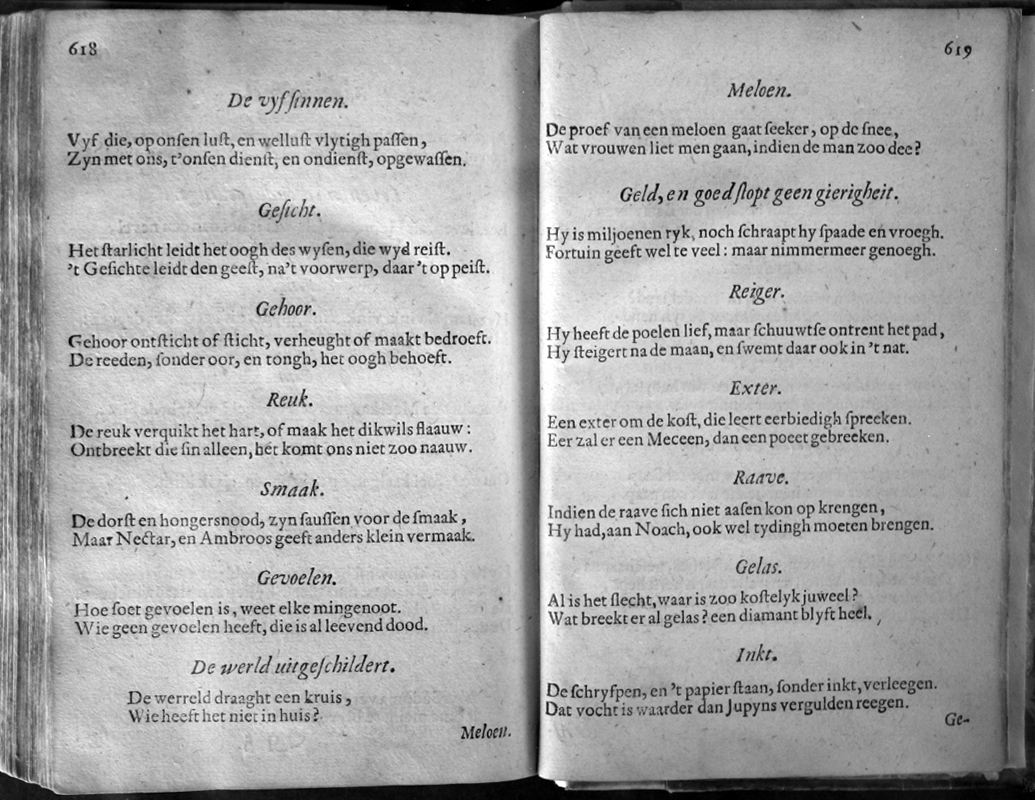 618
De vyf ſinnen.
Vyf die, op onſen luſt, en welluſt vlytigh paſſen,
Zyn met ons, t'onſen dienſt, en ondienſt, opgewaſſen.
Geſicht.
Het ſtarlicht leidt het oogh des wyſen, die wyd reiſt.
't Geſichte leidt den geeſt, na't voorwerp, daar 't op peiſt.
Gehoor.
Gehoor ontſticht of ſticht, verheught of maakt bedroeft.
De reeden, ſonder oor, en tongh, het oogh behoeft.
Reuk.
De reuk verquikt het hart, of maak het dikwils flaauw:
Ontbreekt die ſin alleen, het komt ons niet zoo naauw.
Smaak.
De dorſt en hongersnood, zyn ſauſſen voor de ſmaak,
Maar Nectar, en Ambroos geeft anders klein vermaak.
Gevoelen.
Hoe ſoet gevoelen is, weet elke mingenoot.
Wie geen gevoelen heeft, die is al leevend dood.
De werld uitgeſchildert.
De werreld draaght een kruis,
Wie heeft het niet in huis?
Meloen.
619
Meloen.
De proef van een meloen gaat ſeeker, op de ſnee,
Wat vrouwen liet men gaan, indien de man zoo dee?
Geld, en goed ſlopt geen gierigheit.
Hy is miljoenen ryk, noch ſchraapt hy ſpaade en vroegh.
Fortuin geeft wel te veel: maar nimmermeer genoegh.
Reiger.
Hy heeft de poelen lief, maar ſchuuwtſe ontrent het pad,
Hy ſteigert na de maan, en ſwemt daar ook in 't nat.
Exter.
Een exter om de koſt, die leert eerbiedigh ſpreeken.
Eer zal er een Meceen, dan een poeet gebreeken.
Raave.
Indien de raave ſich niet aaſen kon op krengen,
Hy had, aan Noach, ook wel tydingh moeten brengen.
Gelas.
Al is het ſlecht, waar is zoo koſtelyk juweel?
Wat breekt er al gelas? een diamant blyft heel.
Inkt.
De ſchryfpen, en 't papier ſtaan, ſonder inkt, verleegen.
Dat vocht is waarder dan Jupyns vergulden reegen.
Ge-